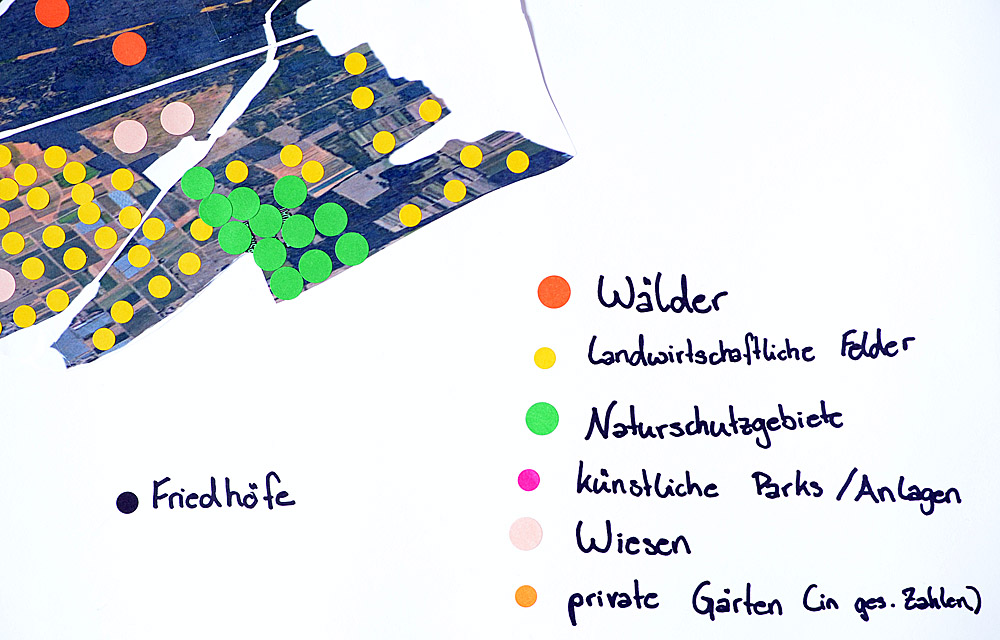 Wälder
Landwirtschaftliche Felder
Naturschutzgebiete
künstliche Parks / Anlagen
Friedhöfe
Wiesen
private Gärten (in ges. Zahlen)